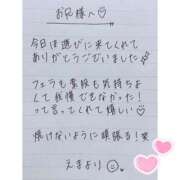 お兄様へ♡
今日は遊びに来てくれて
ありがとうございました
フェラも素股も気持ちよ
くて我慢できなかった!
って言ってくれて嬉しい♡
焼けないように頑張る!
えまより